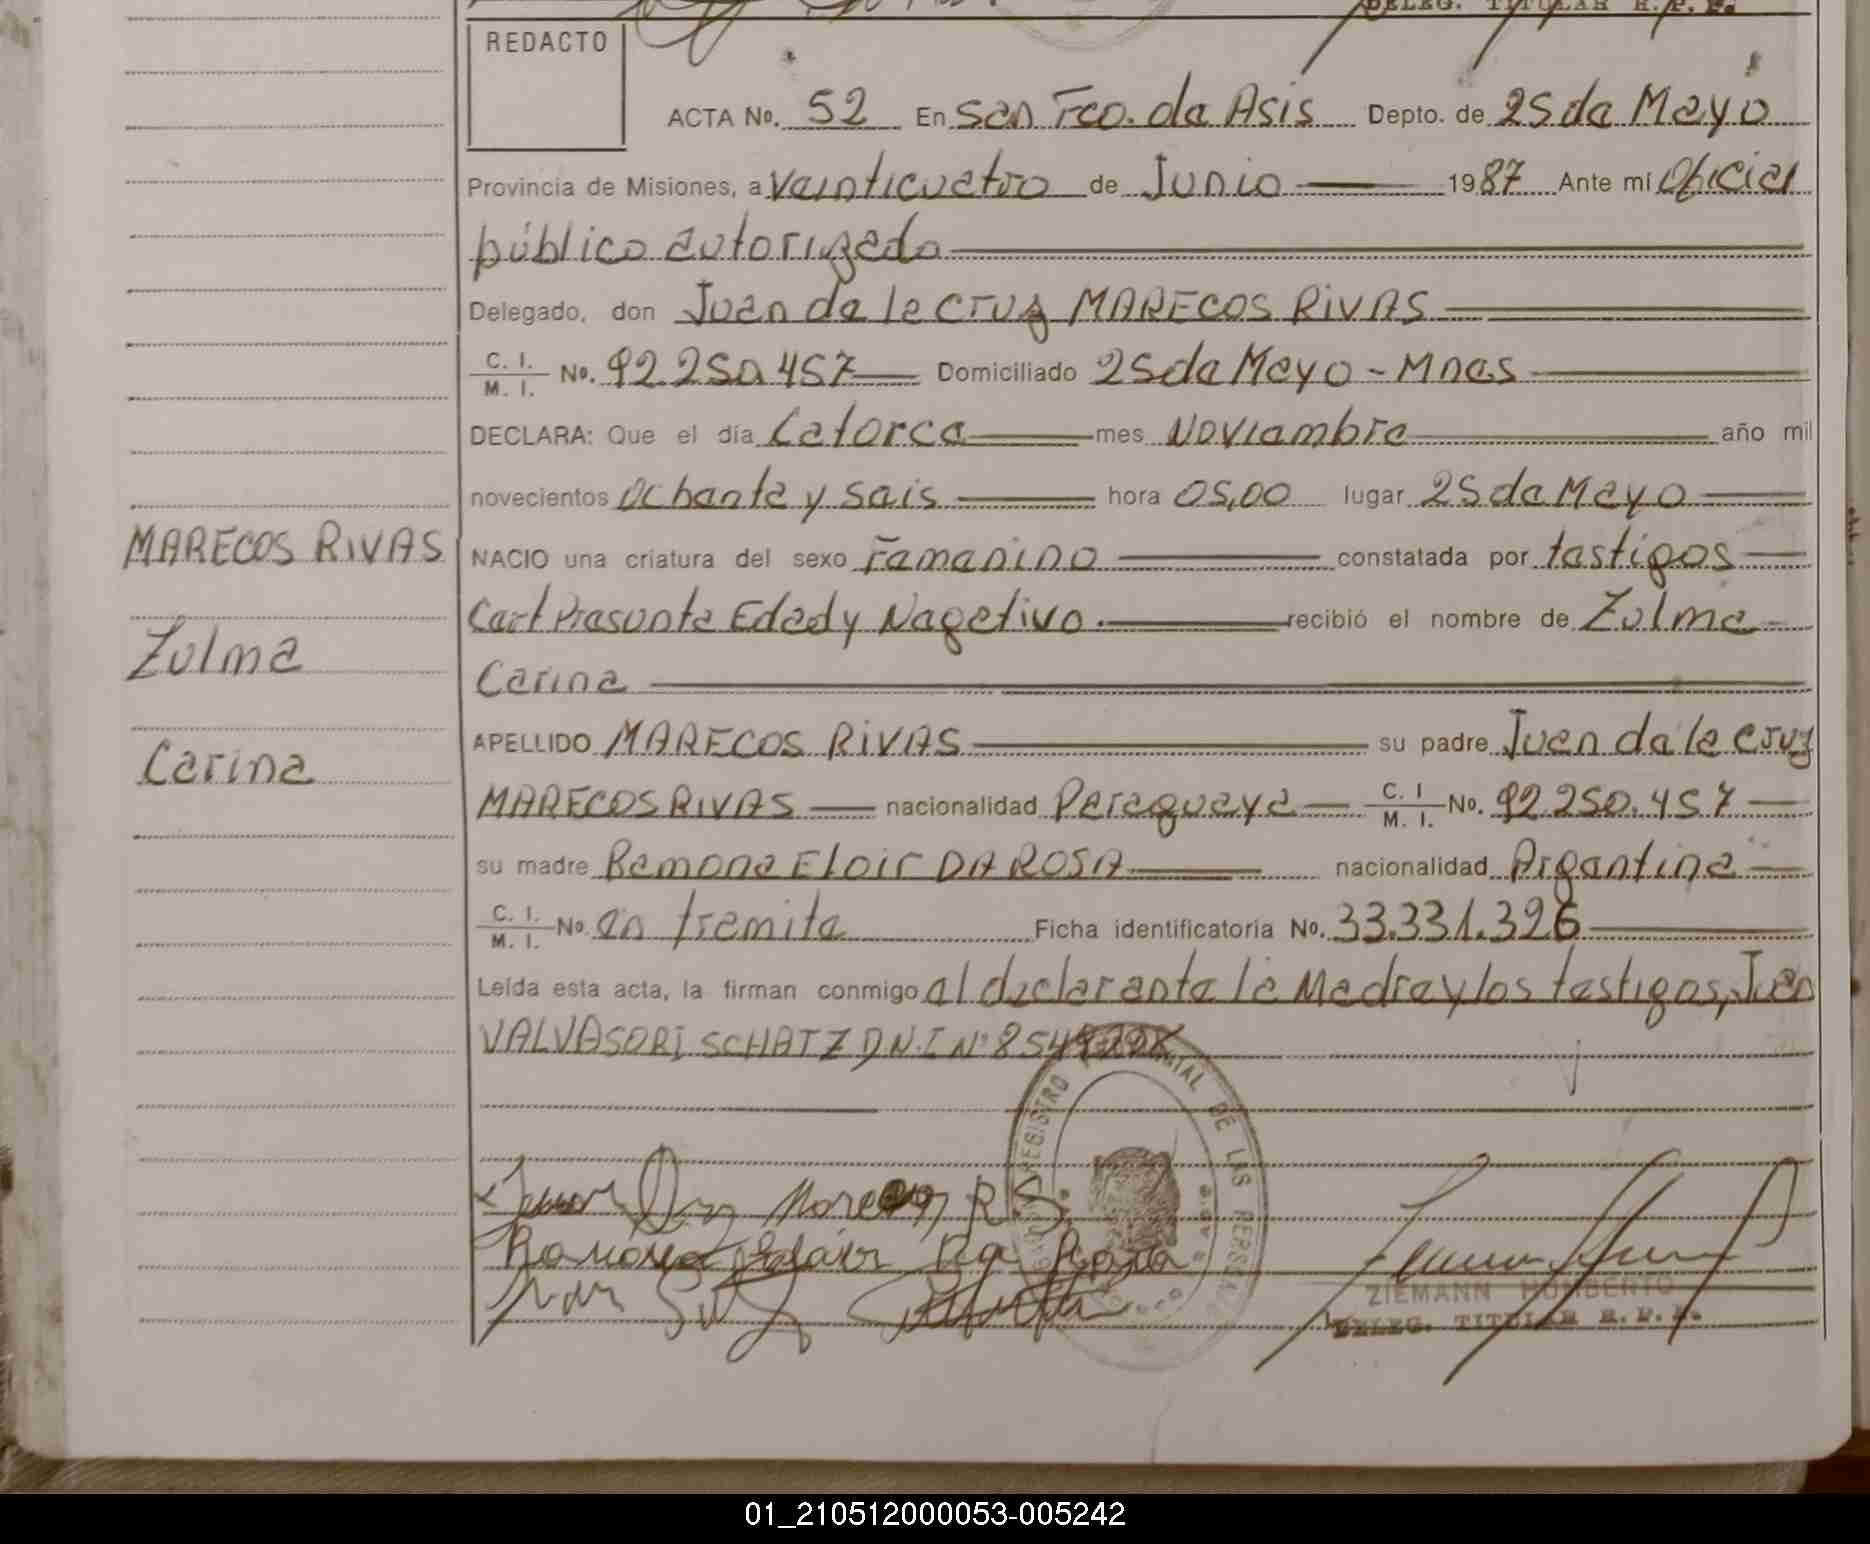 DELEG. TITULAR R. P. P.
REDACTO
ACTA No. 52 En San Fco. de Asis Depto. de 25 de Mayo
Provincia de Misiones, a Veinticuatro de Junio 1987 Ante mi Oficial
público autorizado
Delegado, don Juan de la Cruz MARECOS RIVAS
C. I. M. I. No. 92.250.457 Domiciliado 25 de Mayo - Mnes
DECLARA: Que el día Catorce mes Noviembre año mil
novecientos Ochenta y seis hora 05,00 lugar 25 de Mayo
MARECOS RIVAS
NACIO una criatura del sexo Femenino constatada por testigos
Cert Presunta Edad y Negativo. recibió el nombre de Zulma
Zulma
Carina
APELLIDO MARECOS RIVAS su padre Juan de la Cruz
Carina
MARECOS RIVAS nacionalidad Paraguaya C. I M. I. No. 92.250.457
su madre Ramona Eloir DA ROSA nacionalidad Argentina
C. I. M. I. No. en tramite Ficha identificatoria No. 33.331.326
Leída esta acta, la firman conmigo el declarante la Madre y los testigos, Juan
VALVASORI SCHATZ D.N.I Nº
REGISTRO PROVINCIAL DE LAS PERSONAS
Ramona Da Rosa
ZIEMANN HUMBERTO
DELEG. TITULAR R. P. P.
01_210512000053-005242